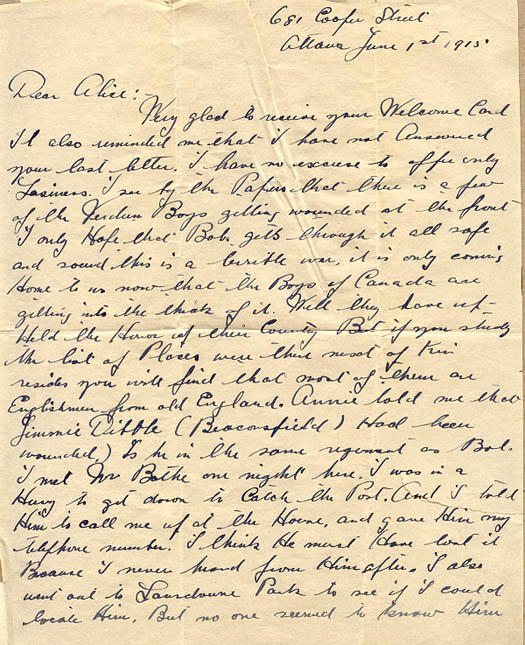 681 Cooper Street
Ottawa June 1st 1915
Dear Alice:
Very glad to receive your Welcome Card
It also reminded me that I have not Answered
your last letter. I have no excuse to offer only
Lasiness. I see by the Papers that there is a few
of the Verdun Boys getting wounded at the front
I only Hope that Bob gets through it all safe
and sound, this is a terrible war, it is only coming
Home to us now that the Boys of Canada are
getting into the thick of it. Well they have up-
Held the Honor of their County But if you study
the list of Places were their next of Kin
resides you will find that most of them are
Englishmen from old England. Annie told me that
Jimmie Dibble (Beaconsfield) Had been
wounded,) Is he in the same regiment as Bob.
I met Mr Bathe one night here. I was in a
Hury to get down to Catch the Post. And I told
Him to call me up at the House, and gave Him my
telephone number. I think He must Have lost it
Because I never heard from Him after. I also
went out to Lansdowne Park to see if I could
locate Him, But no one seemed to know Him